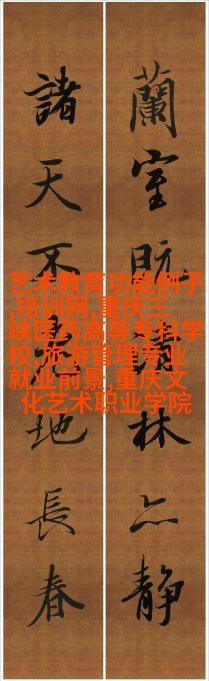 蘭室既清林亦静
諸天不老地長春
艺术教育功能例子
,培训网,重庆三
峡医药高等专科学
校,旅游管理专业
就业前景,重庆文
化艺术职业学院